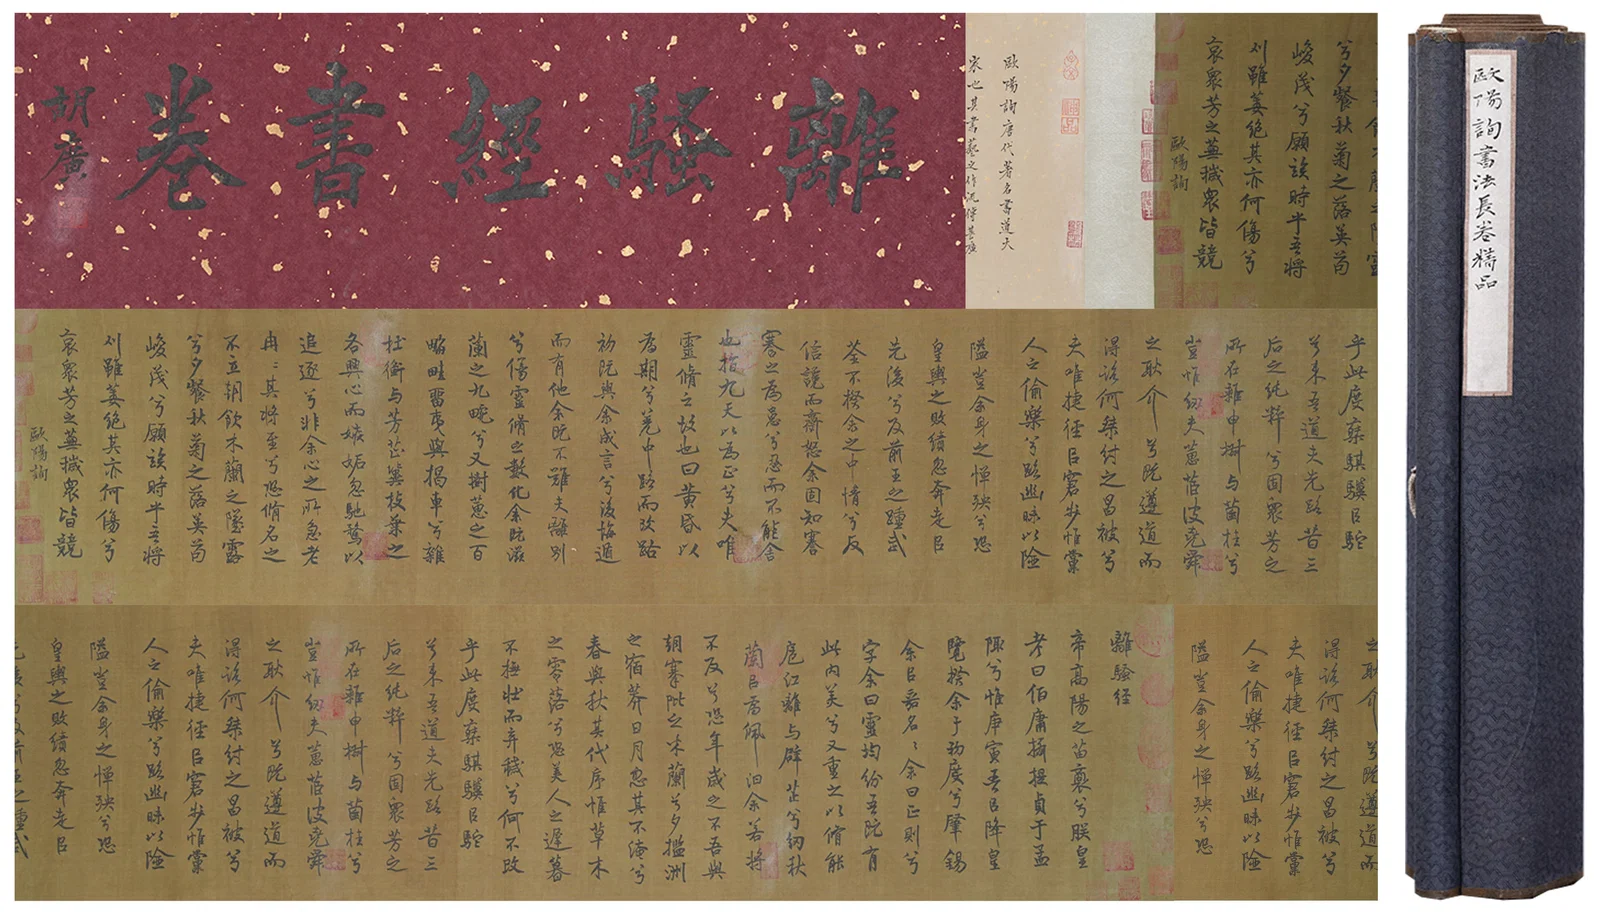 兮夕餐秋菊之落英苟
峻茂兮願竢時乎吾將
刈雖萎絕其亦何傷兮
哀衆芳之蕪穢衆皆競
歐陽詢
歐陽詢唐代著名書道大
家也其書藝之作流傳甚
離騷經書卷
胡廣
乎此度乘騏驥㠯駝
兮來吾道夫先路昔三
后之純粹兮固衆芳之
所在雜申椒与菌桂兮
豈惟紉夫蕙茝彼堯舜
之耿介兮既遵道而
得路何桀紂之昌被兮
夫唯捷徑㠯窘步惟黨
人之偷樂兮路幽昧以險
隘豈余身之憚殃兮恐
皇輿之敗績忽奔走㠯
先後兮及前王之踵武
荃不揆余之中情兮反
信讒而齌怒余固知謇
謇之為患兮忍而不能舍
也指九天以為正兮夫唯
靈脩之故也曰黃昏以
為期兮羌中路而改路
初既與余成言兮後悔遁
而有他余既不難夫離別
兮傷靈脩之數化余既滋
蘭之九畹兮又樹蕙之百
畮畦留夷與揭車兮雜
杜衡与芳芷冀枝葉之
各興心而嫉妬忽馳騖以
追逐兮非余心之所急老
冉冉其將至兮恐脩名之
不立朝飲木蘭之墜露
兮夕餐秋菊之落英苟
峻茂兮願竢時乎吾將
刈雖萎絕其亦何傷兮
哀衆芳之蕪穢衆皆競
歐陽詢
之耿介兮既遵道而
得路何桀紂之昌被兮
夫唯捷徑㠯窘步惟黨
人之偷樂兮路幽昧以險
隘豈余身之憚殃兮恐
離騷經
帝高陽之苗裔兮朕皇
考曰伯庸攝提貞于孟
陬兮惟庚寅吾㠯降皇
覽揆余于初度兮肇錫
余㠯嘉名名余曰正則兮
字余曰靈均紛吾既有
此內美兮又重之以脩能
扈江離与辟芷兮紉秋
蘭㠯為佩汩余若將
不及兮恐年歲之不吾與
朝搴阰之木蘭兮夕攬洲
之宿莽日月忽其不淹兮
春與秋其代序惟草木
之零落兮恐美人之遲暮
不撫壯而弃穢兮何不改
乎此度乘騏驥㠯駝
兮來吾道夫先路昔三
后之純粹兮固衆芳之
所在雜申椒与菌桂兮
豈惟紉夫蕙茝彼堯舜
之耿介兮既遵道而
得路何桀紂之昌被兮
夫唯捷徑㠯窘步惟黨
人之偷樂兮路幽昧以險
隘豈余身之憚殃兮恐
皇輿之敗績忽奔走㠯
歐陽詢書法長卷精品